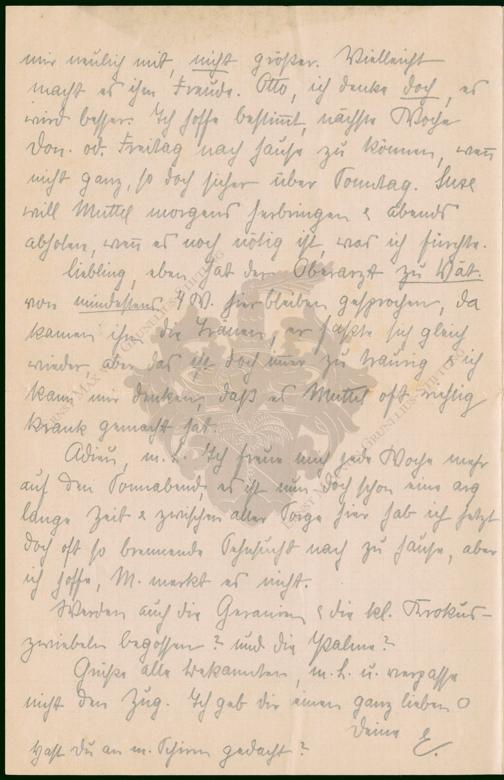 mir neulich mit, nicht größer. Vielleicht
macht es ihm Freude. Otto, ich denke doch, es
wird besser. Ich hoffe bestimmt, nächste Woche
Don. od. Freitag nach Hause zu können, wenn
nicht ganz, so doch sicher über Sonntag. Suse
will Muttel morgens herbringen & abends
abholen, wenn es noch nötig ist, was ich fürchte.
Liebling, eben hat der Oberarzt zu Vät.
von mindestens 4 W. hierbleiben gesprochen, da
kamen ihm die Tränen, er faßte sich gleich
wieder, aber das ist doch immer zu traurig & ich
kann mir denken, daß es Muttel oft richtig
krank gemacht hat.
Adieu, m. L. Ich freue mich jede Woche mehr
auf den Sonnabend, es ist nun doch schon eine arg
lange Zeit & zwischen aller Sorge hier hab ich jetzt
doch oft so brennende Sehnsucht nach zu Hause, aber
ich hoffe, M. merkt es nicht.
Werden auch die Geranien & die kl. Krokus-
zwiebeln begossen? und die Palme?
Grüße alle Bekannten, m. L. u. verpasse
nicht den Zug. Ich geb dir einen ganz lieben O
Deine E.
Hast Du an m. Schirm gedacht?